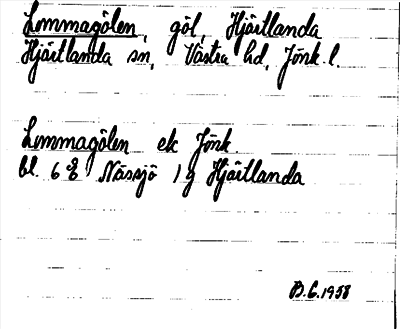 Lommagölen, göl, Hjärtlanda
Hjärtlanda sn, Västra hd, Jönk. l.
Lommagölen ek Jönk.
bl. 6 E Nässjö 1 g Hjärtlanda
B.E.1958